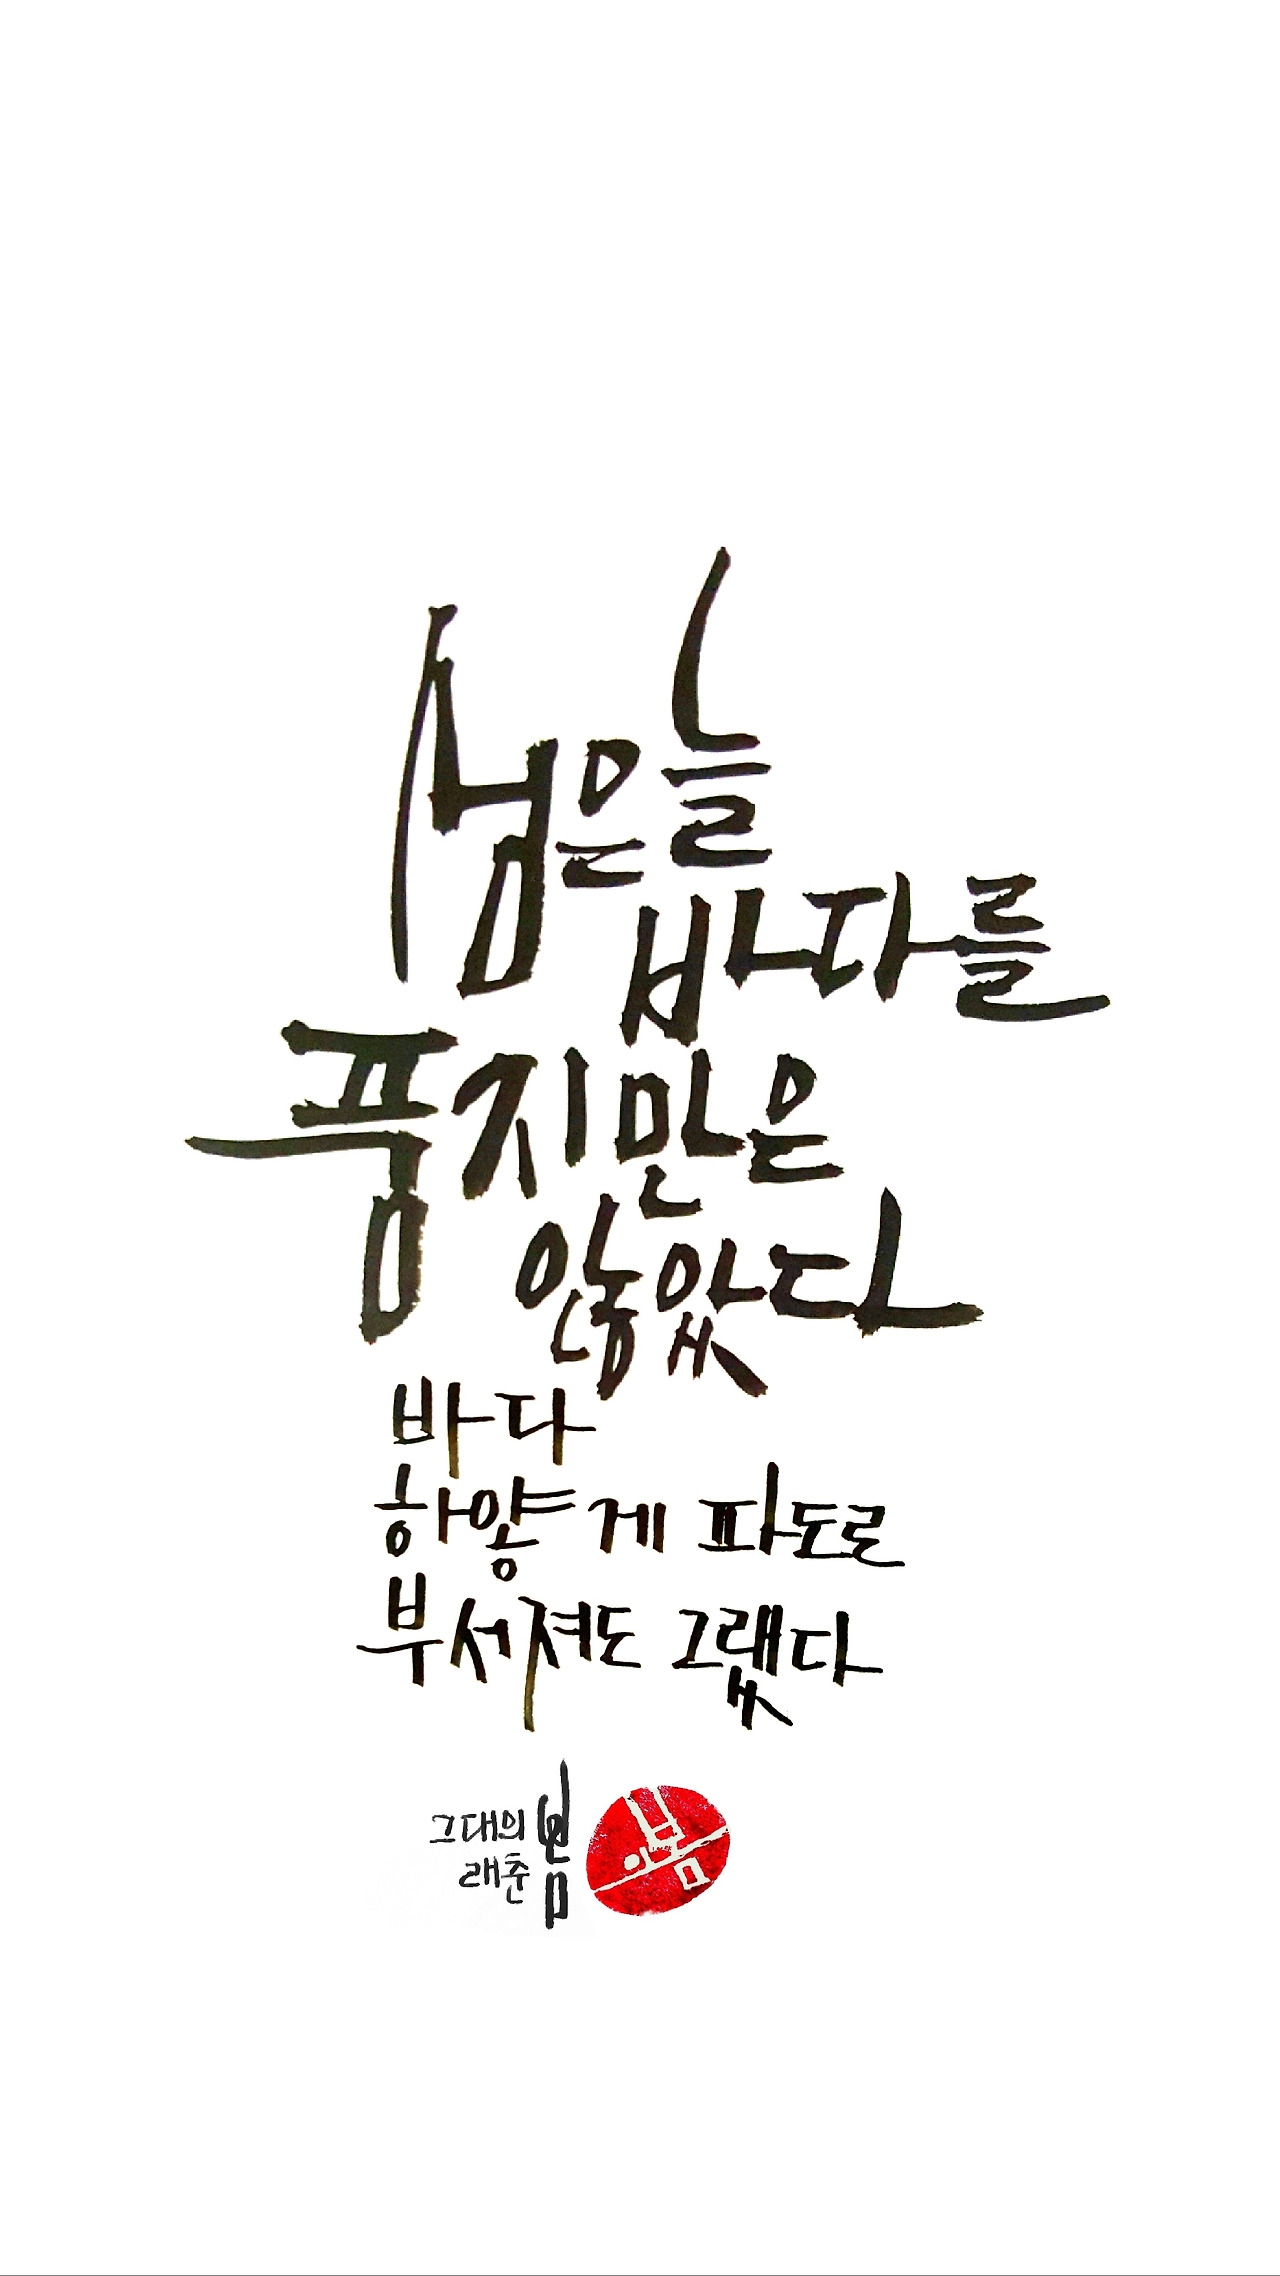 섬은 늘
바다를
품지만은
않았다
바다
하얗게 파도로
부서져도 그랬다
그대의 봄
래춘
봄